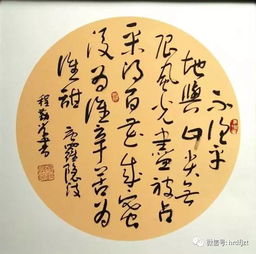 不论平
地与山尖无
限风光尽被占
采得百花成蜜
后为谁辛苦为
谁甜 录罗隐诗
微信号: hrdfjzt